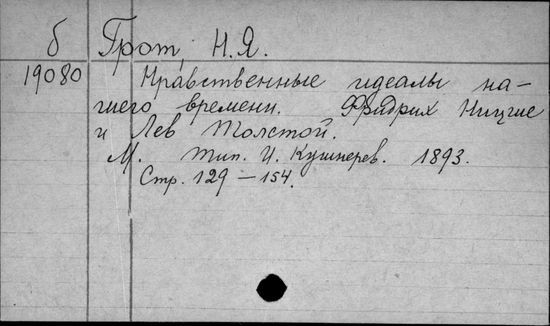 б Грот, Н.Я.
19080 Нравственные идеалы на-
шего времени. Фридрих Ницше
и Лев Толстой.
М. Тип. И. Кушнерев. 1893.
Стр. 129 – 154.